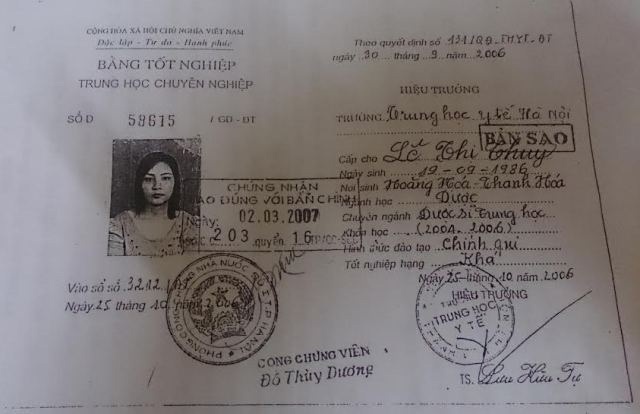 CỘNG HÒA XÃ HỘI CHỦ NGHĨA VIỆT NAM
Độc lập - Tự do - Hạnh phúc
BẰNG TỐT NGHIỆP
TRUNG HỌC CHUYÊN NGHIỆP
SỐ D 59615 / GD - ĐT
CHỨNG NHẬN
SAO ĐÚNG VỚI BẢN CHÍNH
Ngày: 02.03.2007
203 quyển 16
Vào sổ số
Ngày 25 tháng 10 năm 2006
CÔNG CHỨNG VIÊN
Đỗ Thùy Dương
Theo quyết định số
ngày 30 tháng 9 năm 2006
HIỆU TRƯỞNG
TRƯỜNG Trung học y tế Hà Nội
BẢN SAO
Cấp cho Lê Thị Thuý
Ngày sinh 19-09-1986
Nơi sinh Hoằng Hoá - Thanh Hoá
Ngành học Dược
Chuyên ngành Dược sĩ Trung học
Khóa học (2004-2006)
Hình thức đào tạo Chính qui
Tốt nghiệp hạng Khá
Ngày 25 tháng 10 năm 2006
HIỆU TRƯỞNG
TRUNG HỌC
Y TẾ
TS. Lưu Hữu Tự